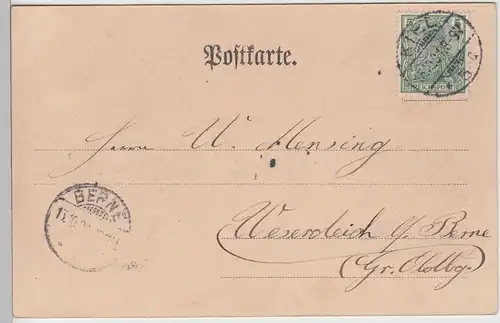 KIEL
Postkarte.
Herrn W. Mensing
BERNE
Weserdeich b/ Berne
(Gr. Oldbg.)